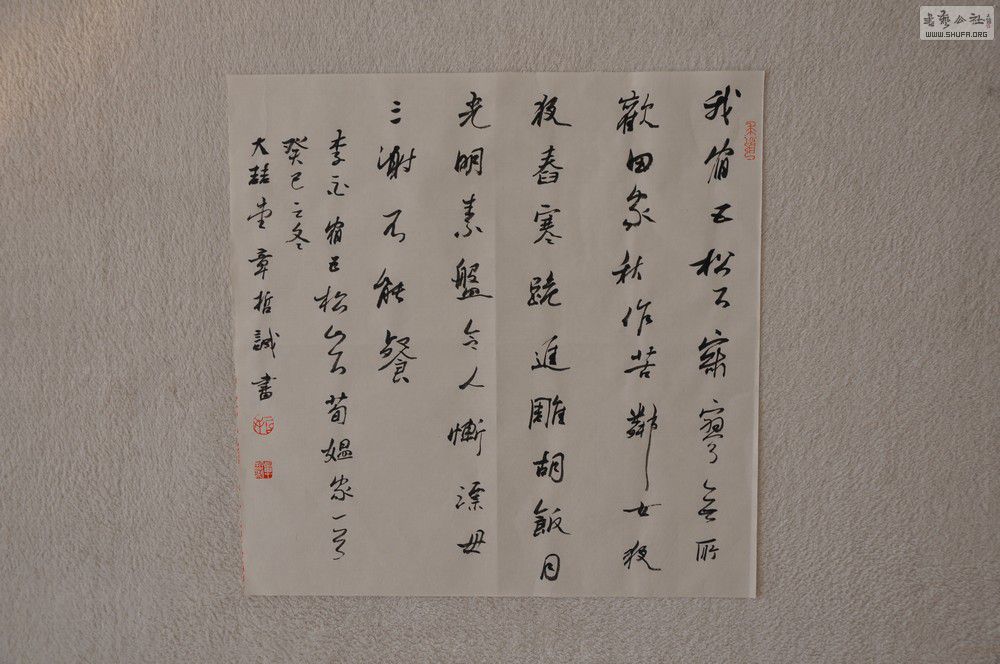 我宿五松下寂寥無所
歡田家秋作苦鄰女夜
夜舂寒跪進雕胡飯月
光明素盤令人慚漂母
三謝不能餐
李白宿五松山下荀媼家一首
癸巳之冬
大喆堂章哲誠書
書藝公社
WWW.SHUFA.ORG